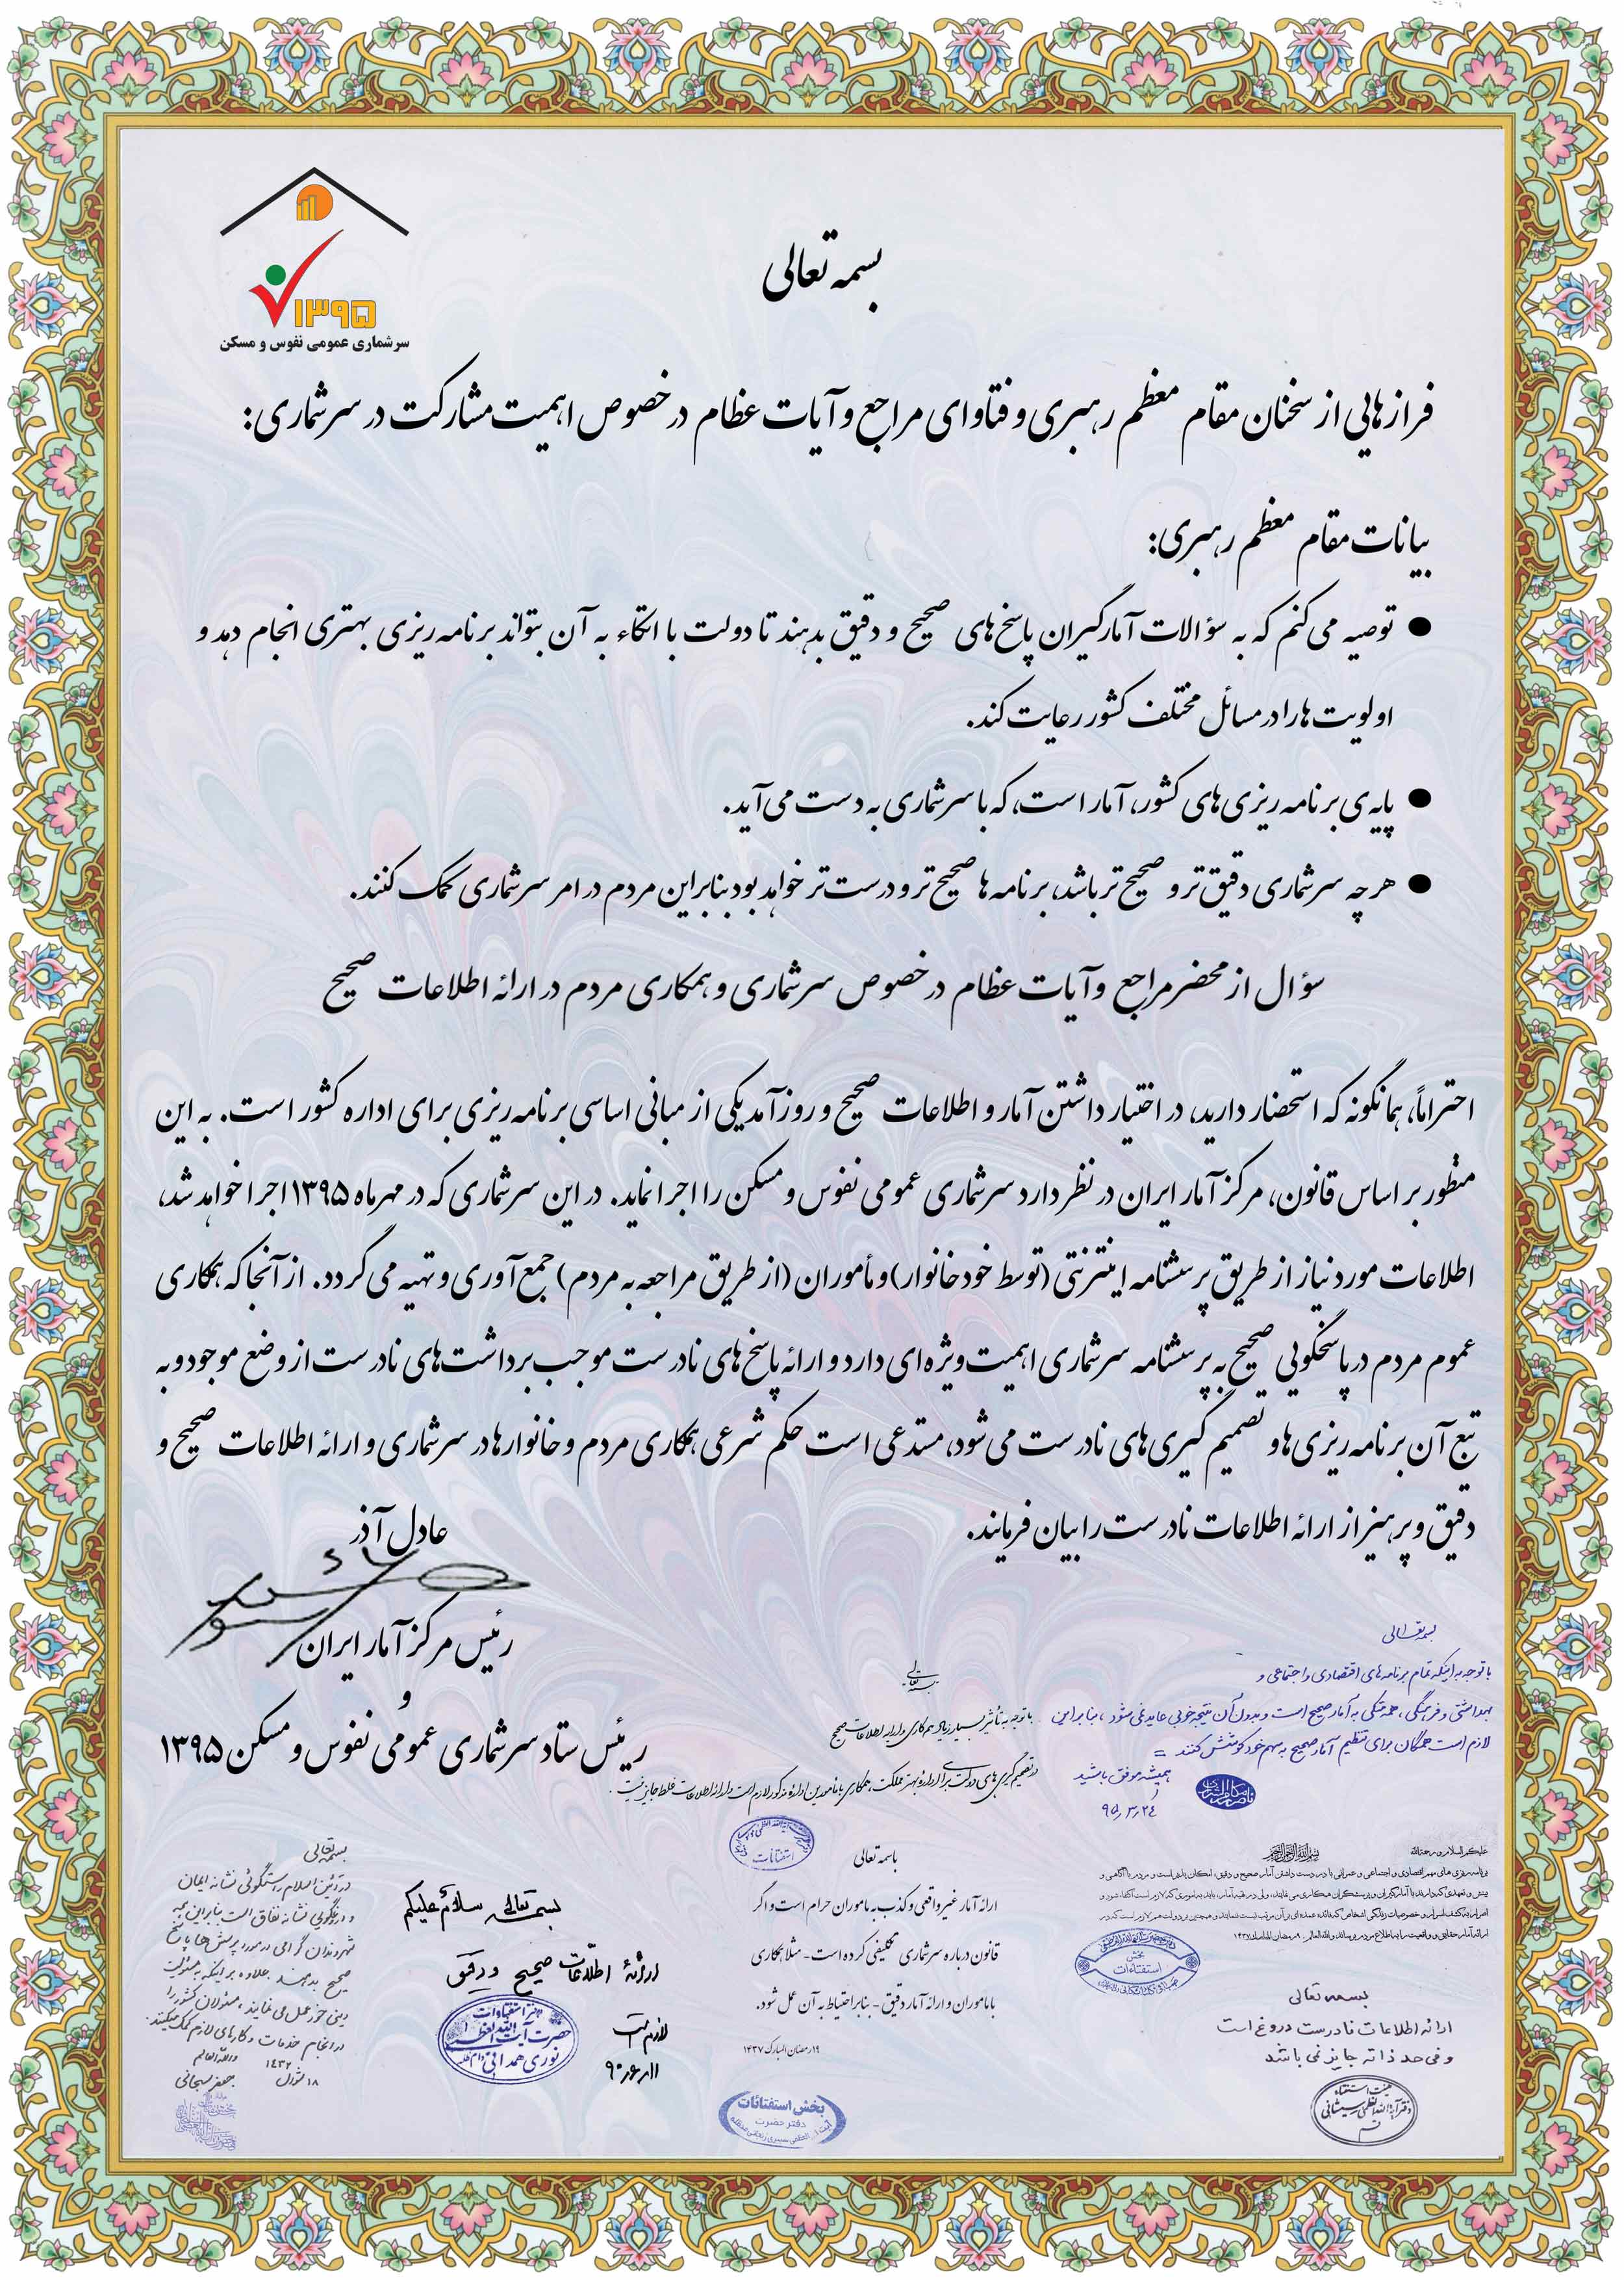 ۱۳۹۵
سرشماری عمومی نفوس و مسکن
بسمه تعالی
فرازهایی از سخنان مقام معظم رهبری و فتاوای مراجع و آیات عظام در خصوص اهمیت مشارکت در سرشماری:
بیانات مقام معظم رهبری:
● توصیه می‌کنم که به سؤالات آمارگیران پاسخ‌های صحیح و دقیق بدهند تا دولت با اتکاء به آن بتواند برنامه‌ریزی بهتری انجام دهد و
اولویت‌ها را در مسائل مختلف کشور رعایت کند.
● پایه‌ی برنامه‌ریزی‌های کشور، آمار است، که با سرشماری به دست می‌آید.
● هرچه سرشماری دقیق‌تر و صحیح‌تر باشد، برنامه‌ها صحیح‌تر و درست‌تر خواهد بود بنابراین مردم در امر سرشماری کمک کنند.
سؤال از محضر مراجع و آیات عظام در خصوص سرشماری و همکاری مردم در ارائه اطلاعات صحیح
احتراماً، همانگونه که استحضار دارید، در اختیار داشتن آمار و اطلاعات صحیح و روزآمد یکی از مبانی اساسی برنامه‌ریزی برای اداره کشور است. به این
منظور بر اساس قانون، مرکز آمار ایران در نظر دارد سرشماری عمومی نفوس و مسکن را اجرا نماید. در این سرشماری که در مهرماه ۱۳۹۵ اجرا خواهد شد،
اطلاعات مورد نیاز از طریق پرسشنامه اینترنتی (توسط خود خانوار) و مأموران (از طریق مراجعه به مردم) جمع‌آوری و تهیه می‌گردد. از آنجا که همکاری
عموم مردم در پاسخگویی صحیح به پرسشنامه سرشماری اهمیت ویژه‌ای دارد و ارائه پاسخ‌های نادرست موجب برداشت‌های نادرست از وضع موجود و به
تبع آن برنامه‌ریزی‌ها و تصمیم‌گیری‌های نادرست می‌شود، مستدعی است حکم شرعی همکاری مردم و خانوارها در سرشماری و ارائه اطلاعات صحیح و
دقیق و پرهیز از ارائه اطلاعات نادرست را بیان فرمایند.
عادل آذر
رئیس مرکز آمار ایران
و
رئیس ستاد سرشماری عمومی نفوس و مسکن ۱۳۹۵
بسمه تعالی
با توجه به اینکه تمام برنامه‌های اقتصادی و اجتماعی و
بهداشتی و فرهنگی، همه متکی به آمار صحیح است و بدون آن نتیجه خوبی عاید نمی‌شود، بنابراین
لازم است همگان برای تنظیم آمار صحیح به سهم خود کوشش کنند
همیشه موفق باشید
۹۵/۳/۲٤
بسمه تعالی
با توجه به تأثیر بسیار زیاد همکاری و ارایه اطلاعات صحیح
در تصمیم‌گیری‌های دولت برای اداره بهتر مملکت، همکاری با مأمورین اداره مذکور لازم است و ارائه اطلاعات غلط جایز نیست.
استفتائات
علیکم السلام و رحمة الله
بسم الله الرحمن الرحیم
بخش
استفتاءات
بسمه تعالی
ارائه اطلاعات نادرست دروغ است
و فی حد ذاته جایز نمی‌باشد
هیئت استفتاء
دفتر آیة الله العظمی سیستانی
قم
باسمه تعالی
ارائه آمار غیر واقعی و کذب به ماموران حرام است و اگر
قانون درباره سرشماری تکلیفی کرده است - مثلا همکاری
با ماموران و ارائه آمار دقیق - بنابر احتیاط به آن عمل شود.
۱۹ رمضان المبارک ۱۴۳۷
بخش استفتائات
دفتر حضرت
بسمه تعالی سلام علیکم
ارائهٔ اطلاعات صحیح و دقیق
لازم است
۹۰/۶/۱۱
دفتر استفتاءات
حضرت آیت الله العظمی
نوری همدانی
بسمه تعالی
در آئین اسلام راستگوئی نشانه ایمان
و دروغگویی نشانه نفاق است بنابراین همه
شهروندان گرامی در مورد پرسش‌ها پاسخ
صحیح بدهند علاوه بر اینکه به مسئولیت
دینی خود عمل می‌نمایند، مسئولان کشور را
در انجام خدمات و کارهای لازم کمک می‌کنند.
والله العالم
۱۸ شوال ۱٤۳۲
جعفر سبحانی